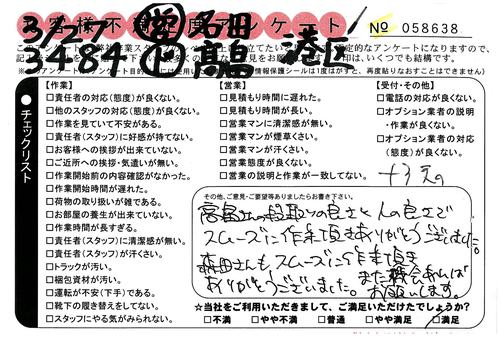 お客様不満足度アンケート
№ 058638
3/27 名田
3484 高畠 港区
チェックリスト
【作業】
□責任者の対応(態度)が良くない。
□他のスタッフの対応(態度)が良くない。
□作業を見ていて不安がある。
□責任者(スタッフ)に好感が持てない。
□お客様への挨拶が出来ていない。
□ご近所への挨拶・気遣いが無い。
□作業開始前の内容確認がなかった。
□作業開始時間が遅れた。
□荷物の取り扱いが雑である。
□お部屋の養生が出来ていない。
□作業時間が長すぎる。
□責任者(スタッフ)に清潔感が無い。
□責任者(スタッフ)が汗くさい。
□トラックが汚い。
□梱包資材が汚い。
□運転が不安(下手)である。
□靴下の履き替えをしてない。
□スタッフにやる気がみられない。
【営業】
□見積もり時間に遅れた。
□見積もり時間が長い。
□営業マンに清潔感が無い。
□営業マンが煙草くさい。
□営業マンが汗くさい。
□営業態度が良くない。
□営業の説明と作業が一致してない。
【受付・その他】
□電話の対応が良くない。
□オプション業者の説明
・作業が良くない。
□オプション業者の対応
(態度)が良くない。
その他、ご意見・ご要望等ありましたらお書き下さい。
の段取りの良さと人の良さで
スムーズに作業頂きありがとうございました。
さんもスムーズに作業頂き
ありがとうございました。また機会あれば
お願いします。
☆当社をご利用いただきまして、ご満足いただけたでしょうか?
□不満 □やや不満 □普通 □やや満足 □満足